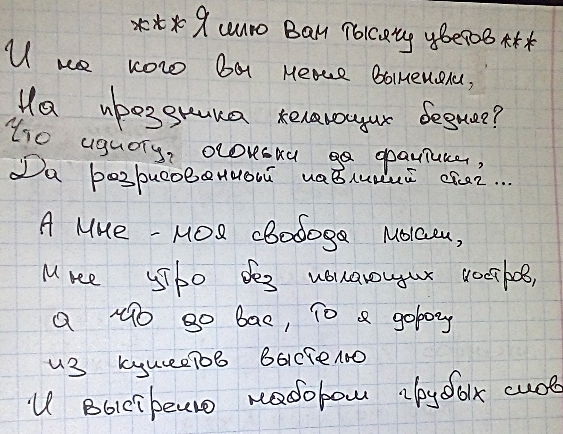 *** Я шлю Вам тысячу цветов ***
И на кого вы меня выменяли,
На праздника желающих бедняг?
Что идиоту, огоньки да фантики,
Да разрисованный павлиний стяг...
А мне - моя свобода мысли,
Мне утро без пылающих костров,
а что до вас, то я дорогу
из куплетов выстелю
И выстрелю набором грубых слов